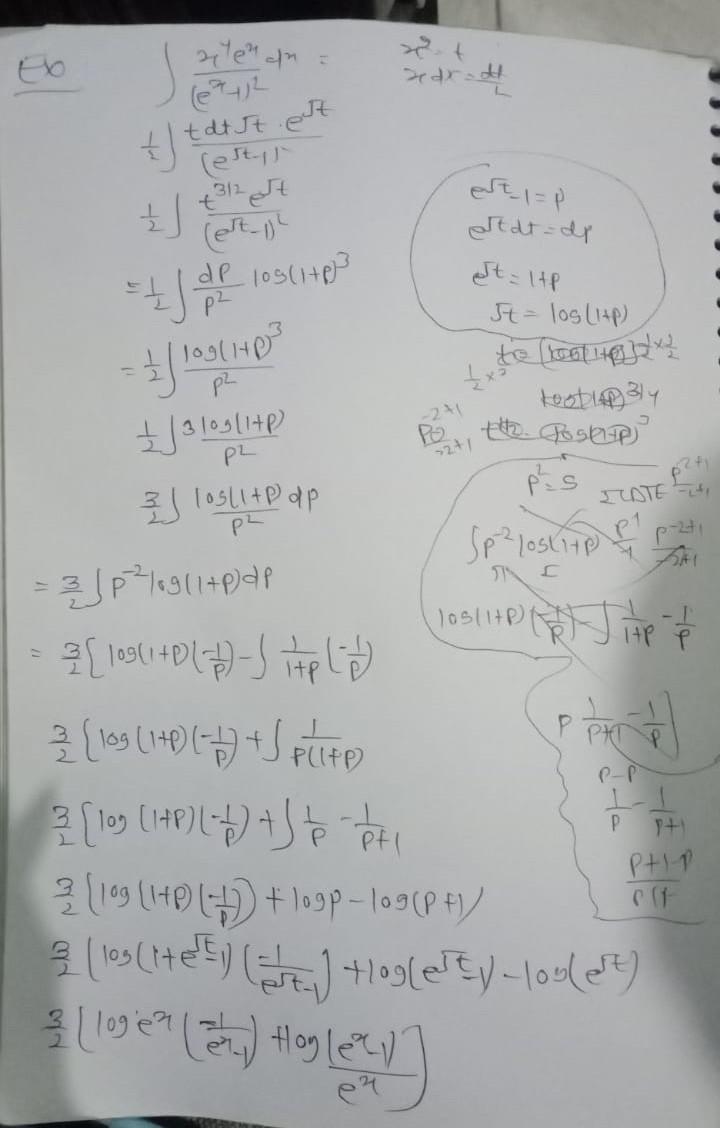 Ex
∫ x⁴eˣ dx / (eˣ-1)² =
x² = t
x dx = dt/2
1/2 ∫ t dt √t · e^√t / (e^√t-1)²
1/2 ∫ t^3/2 e^√t / (e^√t-1)²
= 1/2 ∫ dp/p² log(1+p)³
= 1/2 ∫ log(1+p)³ / p²
1/2 ∫ 3 log(1+p) / p²
3/2 ∫ log(1+p) dp / p²
= 3/2 ∫ p⁻² log(1+p) dp
= 3/2 [ log(1+p) (-1/p) - ∫ 1/(1+p) (-1/p)
3/2 [ log(1+p) (-1/p) + ∫ 1/(p(1+p))
3/2 [ log(1+p) (-1/p) + ∫ 1/p - 1/(p+1)
3/2 ( log(1+p) (-1/p) ) + log p - log(p+1)
3/2 ( log(1+e^√t-1) (-1/(e^√t-1) ] + log(e^√t-1) - log(e^√t)
3/2 [ log eˣ (-1/(eˣ-1)) + log (eˣ-1)/eˣ ]
e^√t-1 = p
e^√t dt = dp
e^√t = 1+p
√t = log(1+p)
p² = s
ILATE p²⁺¹/-2+1
∫ p⁻² log(1+p)
II I
p⁻²⁺¹/-2+1
log(1+p) (-1/p) - ∫ 1/(1+p) - 1/p
p 1/(p+1) - 1/p ]
p-p
1/p - 1/(p+1)
p+1-p